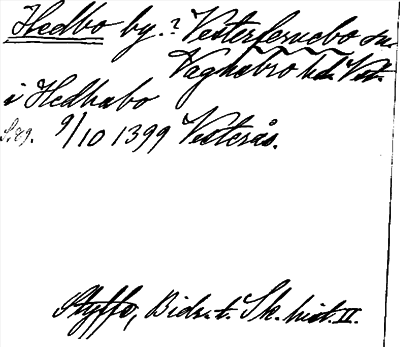 Hedbo by.? Vesterfernebo sn.
Vagnsbro hd. Vst.
i Hedhabo
S. 79. 9/10 1399 Vesterås.
Styffe, Bidr. t. Sk. hist. II.